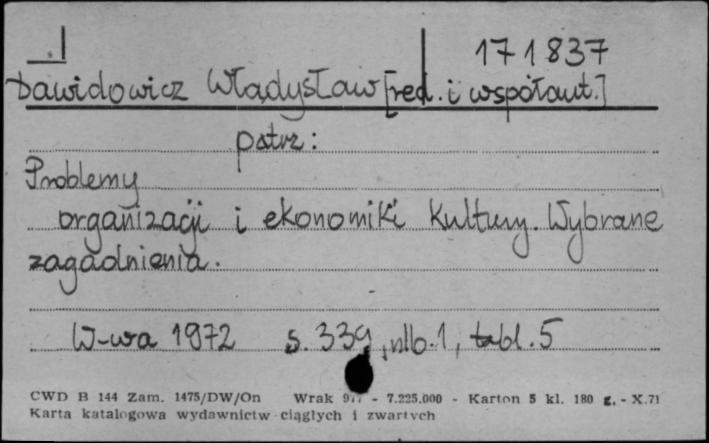 171837
Dawidowicz Władysław [red. i współaut.]
patrz:
Problemy
organizacji i ekonomiki kultury. Wybrane
zagadnienia.
W-wa 1972 s. 339, nlb. 1, tabl. 5
CWD B 144 Zam. 1475/DW/On Wrak - 7.225.000 - Karton 5 kl. 180 g. - X.71
Karta katalogowa wydawnictw ciągłych i zwartych